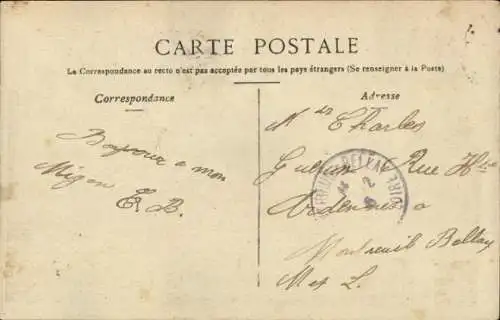 CARTE POSTALE
La Correspondance au recto n'est pas acceptée par tous les pays étrangers (Se renseigner à la Poste)
Correspondance
Bonjour a mon
Mignon E B.
Adresse
Charles
Rue
Ardennes a
Montreuil Bellay
M et L.